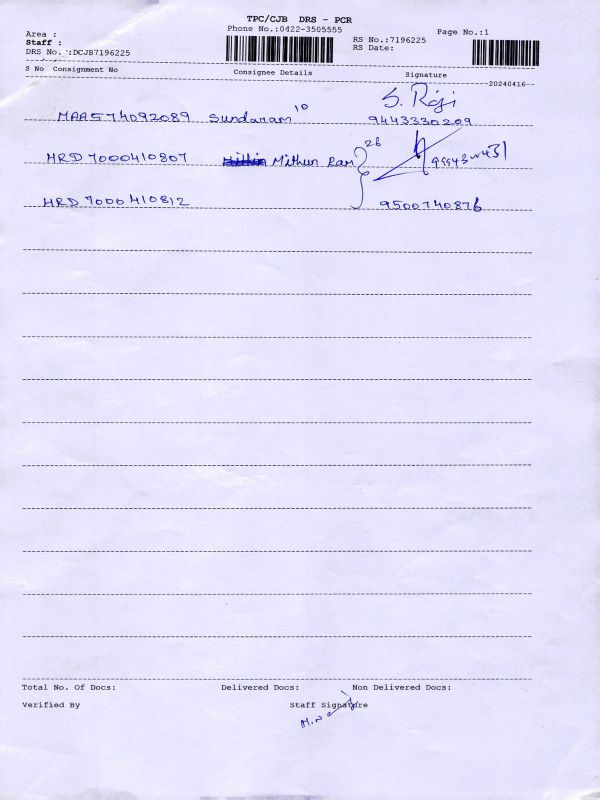 TPC/CJB DRS - PCR
Area : Phone No.:0422-3505555 RS No.:7196225 Page No.:1
Staff : RS Date:
DRS No. :DCJB7196225
S No Consignment No Consignee Details Signature
--20240416--
S. Roji
MAA574092089 Sundaram 10 9443330209
HRD7000410807 Mithun Ram 26
HRD7000410812 9500740876
Total No. Of Docs: Delivered Docs: Non Delivered Docs:
Verified By Staff Signature